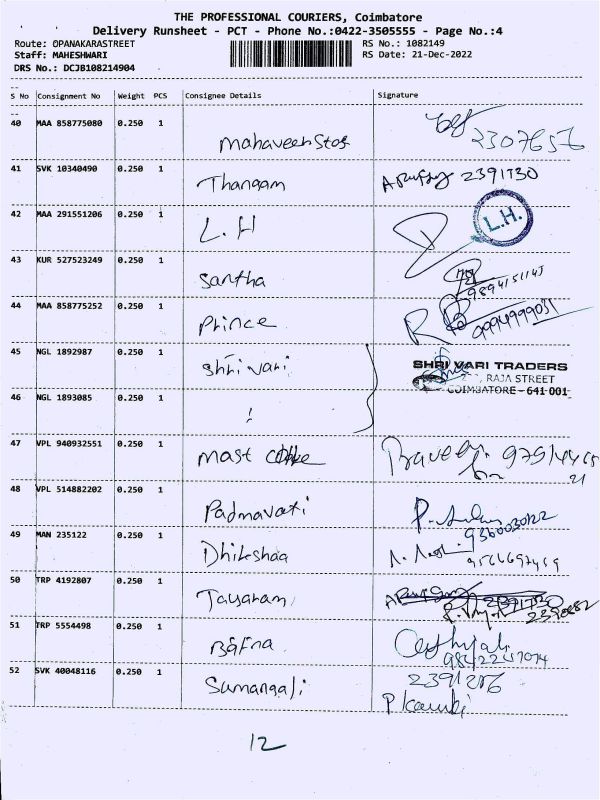 THE PROFESSIONAL COURIERS, Coimbatore
Delivery Runsheet - PCT - Phone No.:0422-3505555 - Page No.:4
Route: OPANAKARASTREET RS No.: 1082149
Staff: MAHESHWARI RS Date: 21-Dec-2022
DRS No.: DCJB108214904
S No Consignment No Weight PCS Consignee Details Signature
40 MAA 858775080 0.250 1
mahaveer Stos 2307656
41 SVK 10340490 0.250 1
Thangam 2391730
42 MAA 291551206 0.250 1
L.H L.H.
43 KUR 527523249 0.250 1
Santha 9894151145
44 MAA 858775252 0.250 1
Prince 9994999031
45 NGL 1892987 0.250 1
Shri vari SHRI VARI TRADERS
RAJA STREET
46 NGL 1893085 0.250 1 COIMBATORE - 641 001
47 VPL 940932551 0.250 1
mast
21
48 VPL 514882202 0.250 1
Padmavati
49 MAN 235122 0.250 1 9360030122
Dhikshaa 9566697459
50 TRP 4192807 0.250 1
Jayaram
51 TRP 5554498 0.250 1
Bafna
52 SVK 40048116 0.250 1
Sumangali 2391286
12